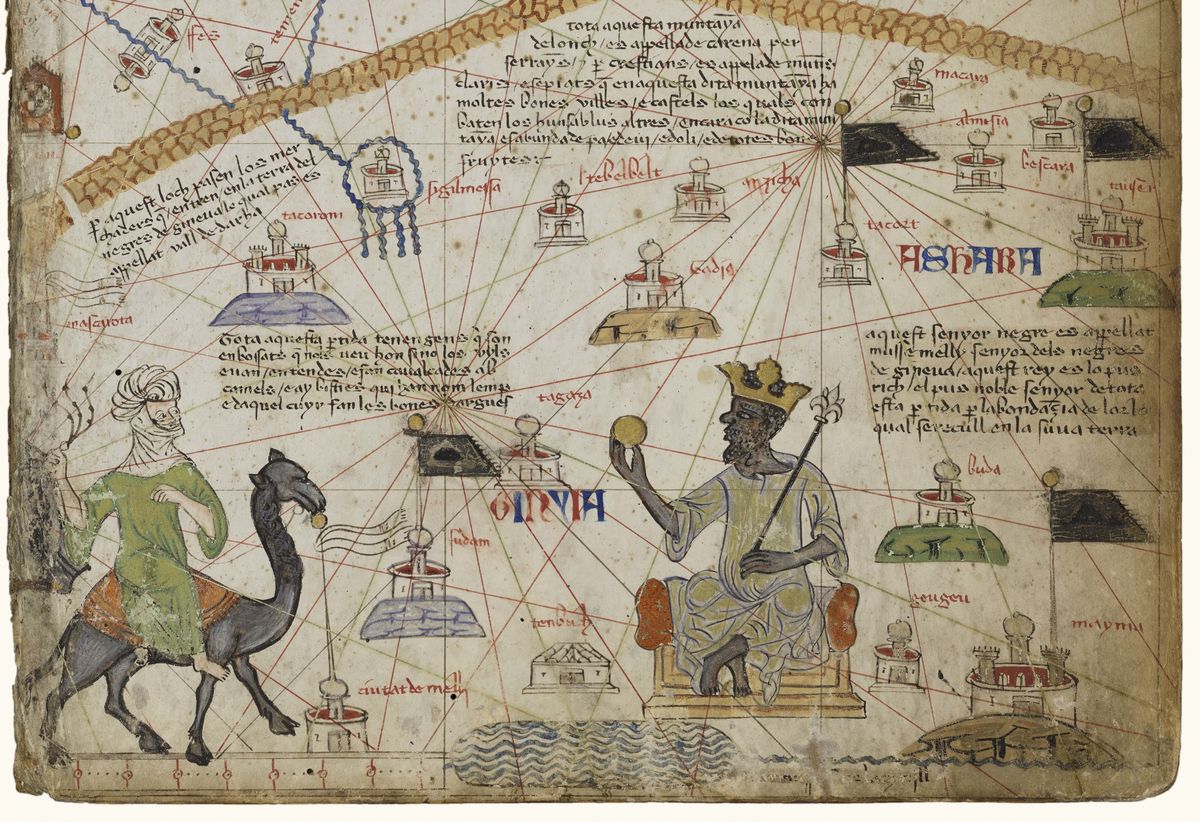 fes
tota aquesta muntaya
de lonch / es appellade carena per
serrayns / 7 p crestians / es appelade muntis
claris / e sepiats q en aquesta dita muntaya ha
moltes bones villes / e castels los quals con
baten los huns ab los altres / encara co la dita mun
taya es abunda de pa e de vi / e doli / e de totes bones
fruytes
macara
almsia
bescara
p aquest loch pasen los mer
chaders q entren en la terra del
negres de gineua lo qual pas es
appellat vall de darha
sigilmessa
anzicha
tacort
tacoroni
ASHARA
tota aquesta ptida tenen gens q son
enbosats q nols veu hom sino los uyls
e uan / en tendes / e fan caualcades ab
camels / e ay bisties qui han nom lemp
e daquel cuyr fan les bones dargues
aquest senyor negre es appellat
musse melly senyor dels negres
de gineua / aquest rey es lo pus
rich / el pus noble senyor de tota
esta ptida p labondazia de lor lo
qual se recull en la suua terra
tagaza
buda
GINYIA
sudam
tenbuch
geugeu
mayma
ciutat de melli